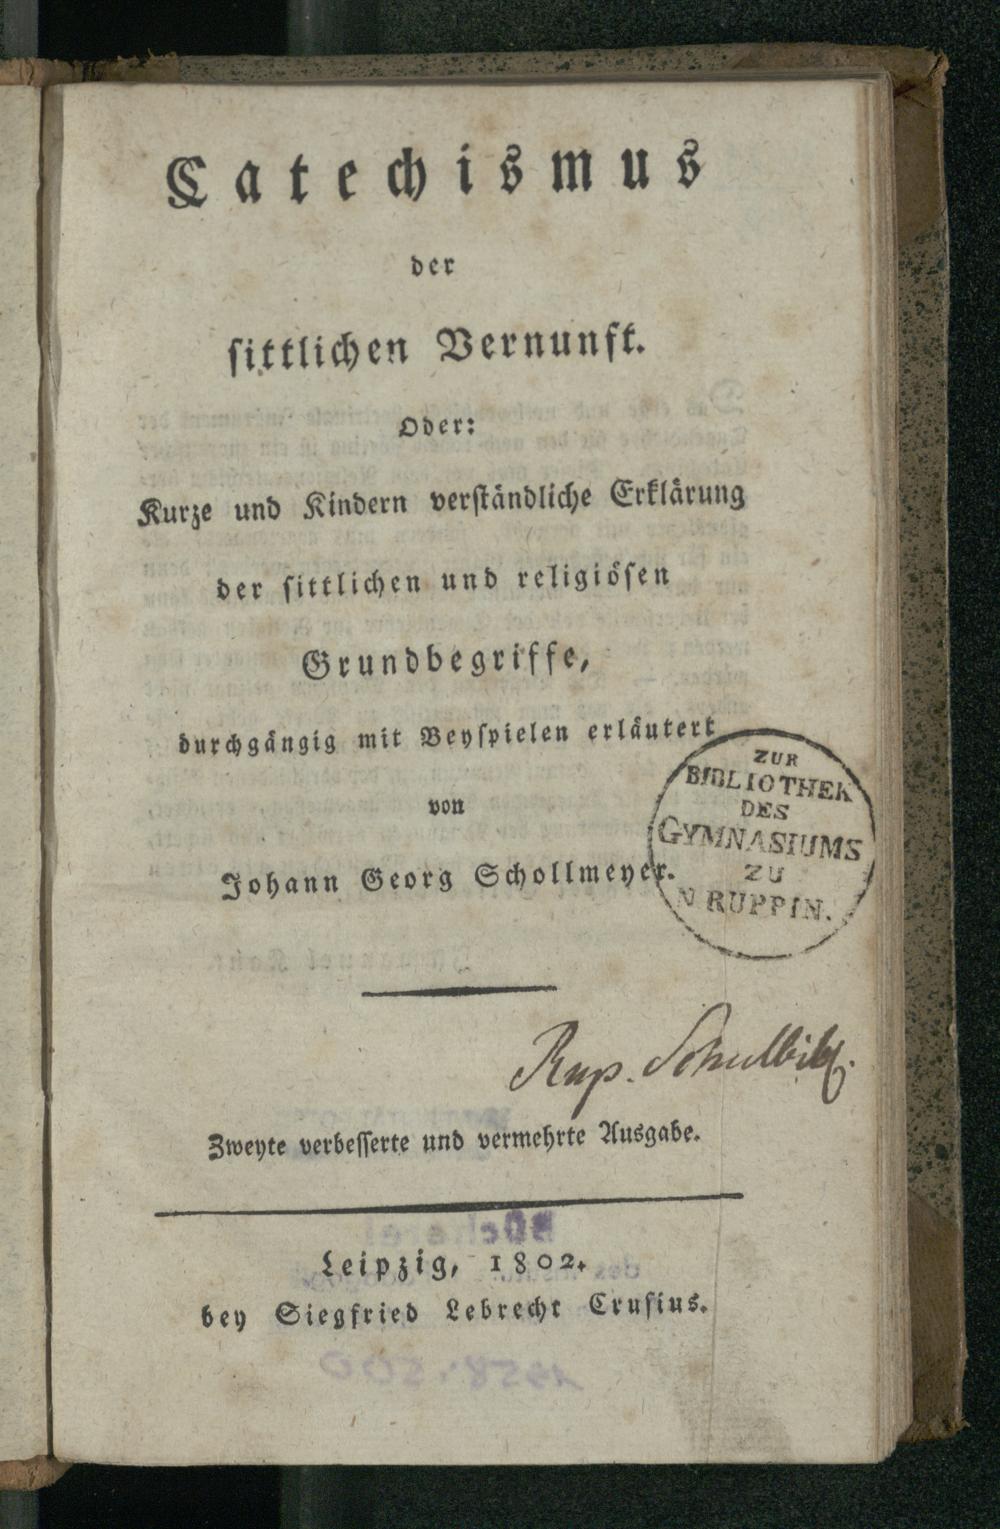 Catechismus
der
sittlichen Vernunft.
Oder:
Kurze und Kindern verständliche Erklärung
der sittlichen und religiösen
Grundbegriffe,
durchgängig mit Beyspielen erläutert
von
Johann Georg Schollmeyer.
ZUR
BIBLIOTHEK
DES
GYMNASIUMS
ZU
N RUPPIN.
Rup. Schulbibl.
Zweyte verbesserte und vermehrte Ausgabe.
Leipzig, 1802.
bey Siegfried Lebrecht Crusius.